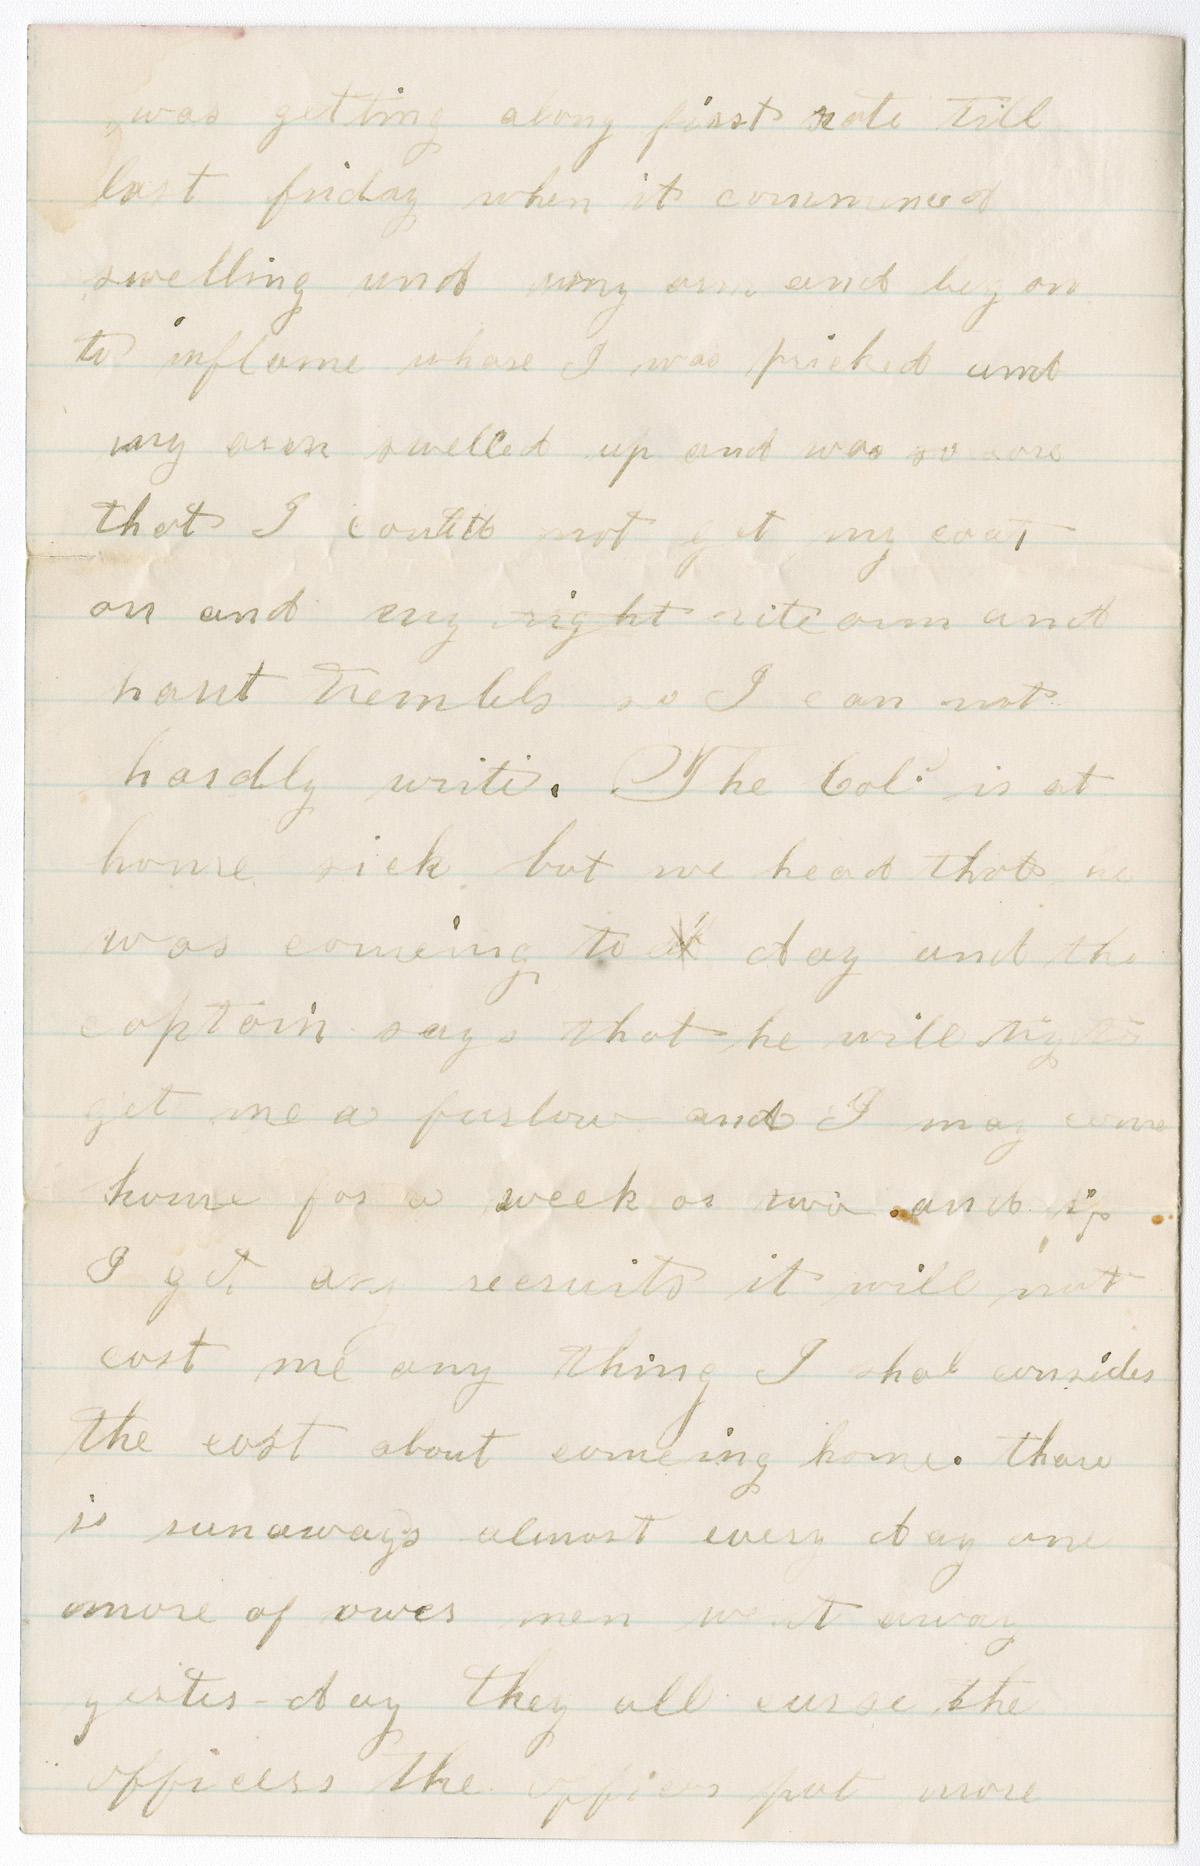 was getting along first rate till
last friday when it commenced
swelling und my arm and began
to inflame whare I was pricked and
my arm swelled up and was so sore
that I not get my coat
on and my right rite arm and
hant trembls so I can not
hardly write. The Col. is at
home sick but we head that he
was comeing to day and the
captain says that he will try to
get me a furlow and I may come
home for a week or two. and if
I get any recruits it will not
cost me any thing I shal consider
the cost about comeing home. thare
is runaways almost every day one
more of ower men went away
yester-day they all curse the
officers the officers put more